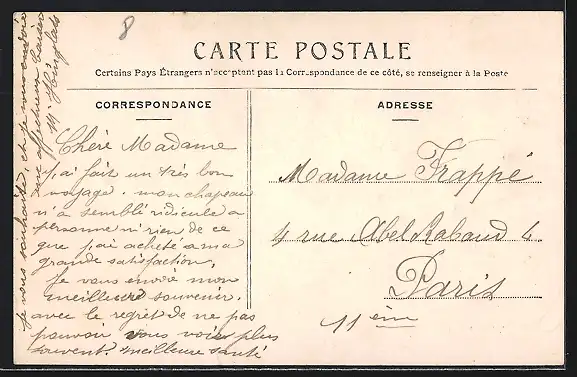 8
CARTE POSTALE
Certains Pays Étrangers n'acceptant pas la Correspondance de ce côté, se renseigner à la Poste
CORRESPONDANCE
Chère Madame
j'ai fait un très bon
voyage. mon chapeau
n'a semblé ridicule a
personne ni rien de ce
que j'ai acheté a ma
grande satisfaction,
Je vous envoie mon
meilleure souvenir,
avec le regret de ne pas
pouvoir vous voir plus
souvent. meilleure santé
je vous souhaite, et je vous envoie
mes affectueux baisers
ADRESSE
Madame Frappé
4 rue Abel Rabaud 4
Paris
11 ème